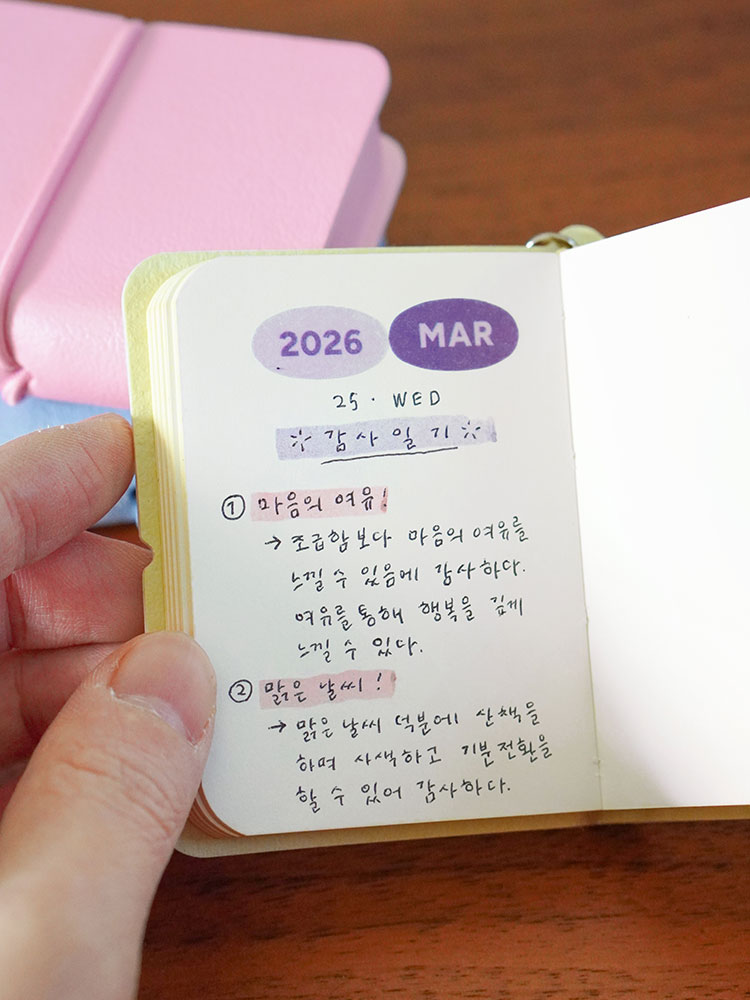 2026 MAR
25 · WED
감사일기
① 마음의 여유!
→ 조급함보다 마음의 여유를
느낄 수 있음에 감사하다.
여유를 통해 행복을 깊게
느낄 수 있다.
② 맑은 날씨!
→ 맑은 날씨 덕분에 산책을
하며 사색하고 기분전환을
할 수 있어 감사하다.